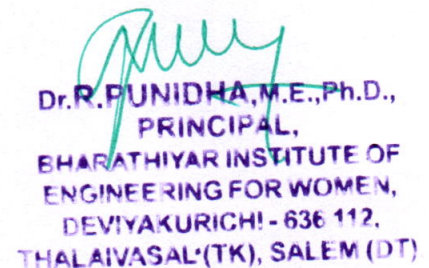 Dr.R.PUNIDHA,M.E.,Ph.D.,
PRINCIPAL,
BHARATHIYAR INSTITUTE OF
ENGINEERING FOR WOMEN,
DEVIYAKURICHI - 636 112,
THALAIVASAL (TK), SALEM (DT)